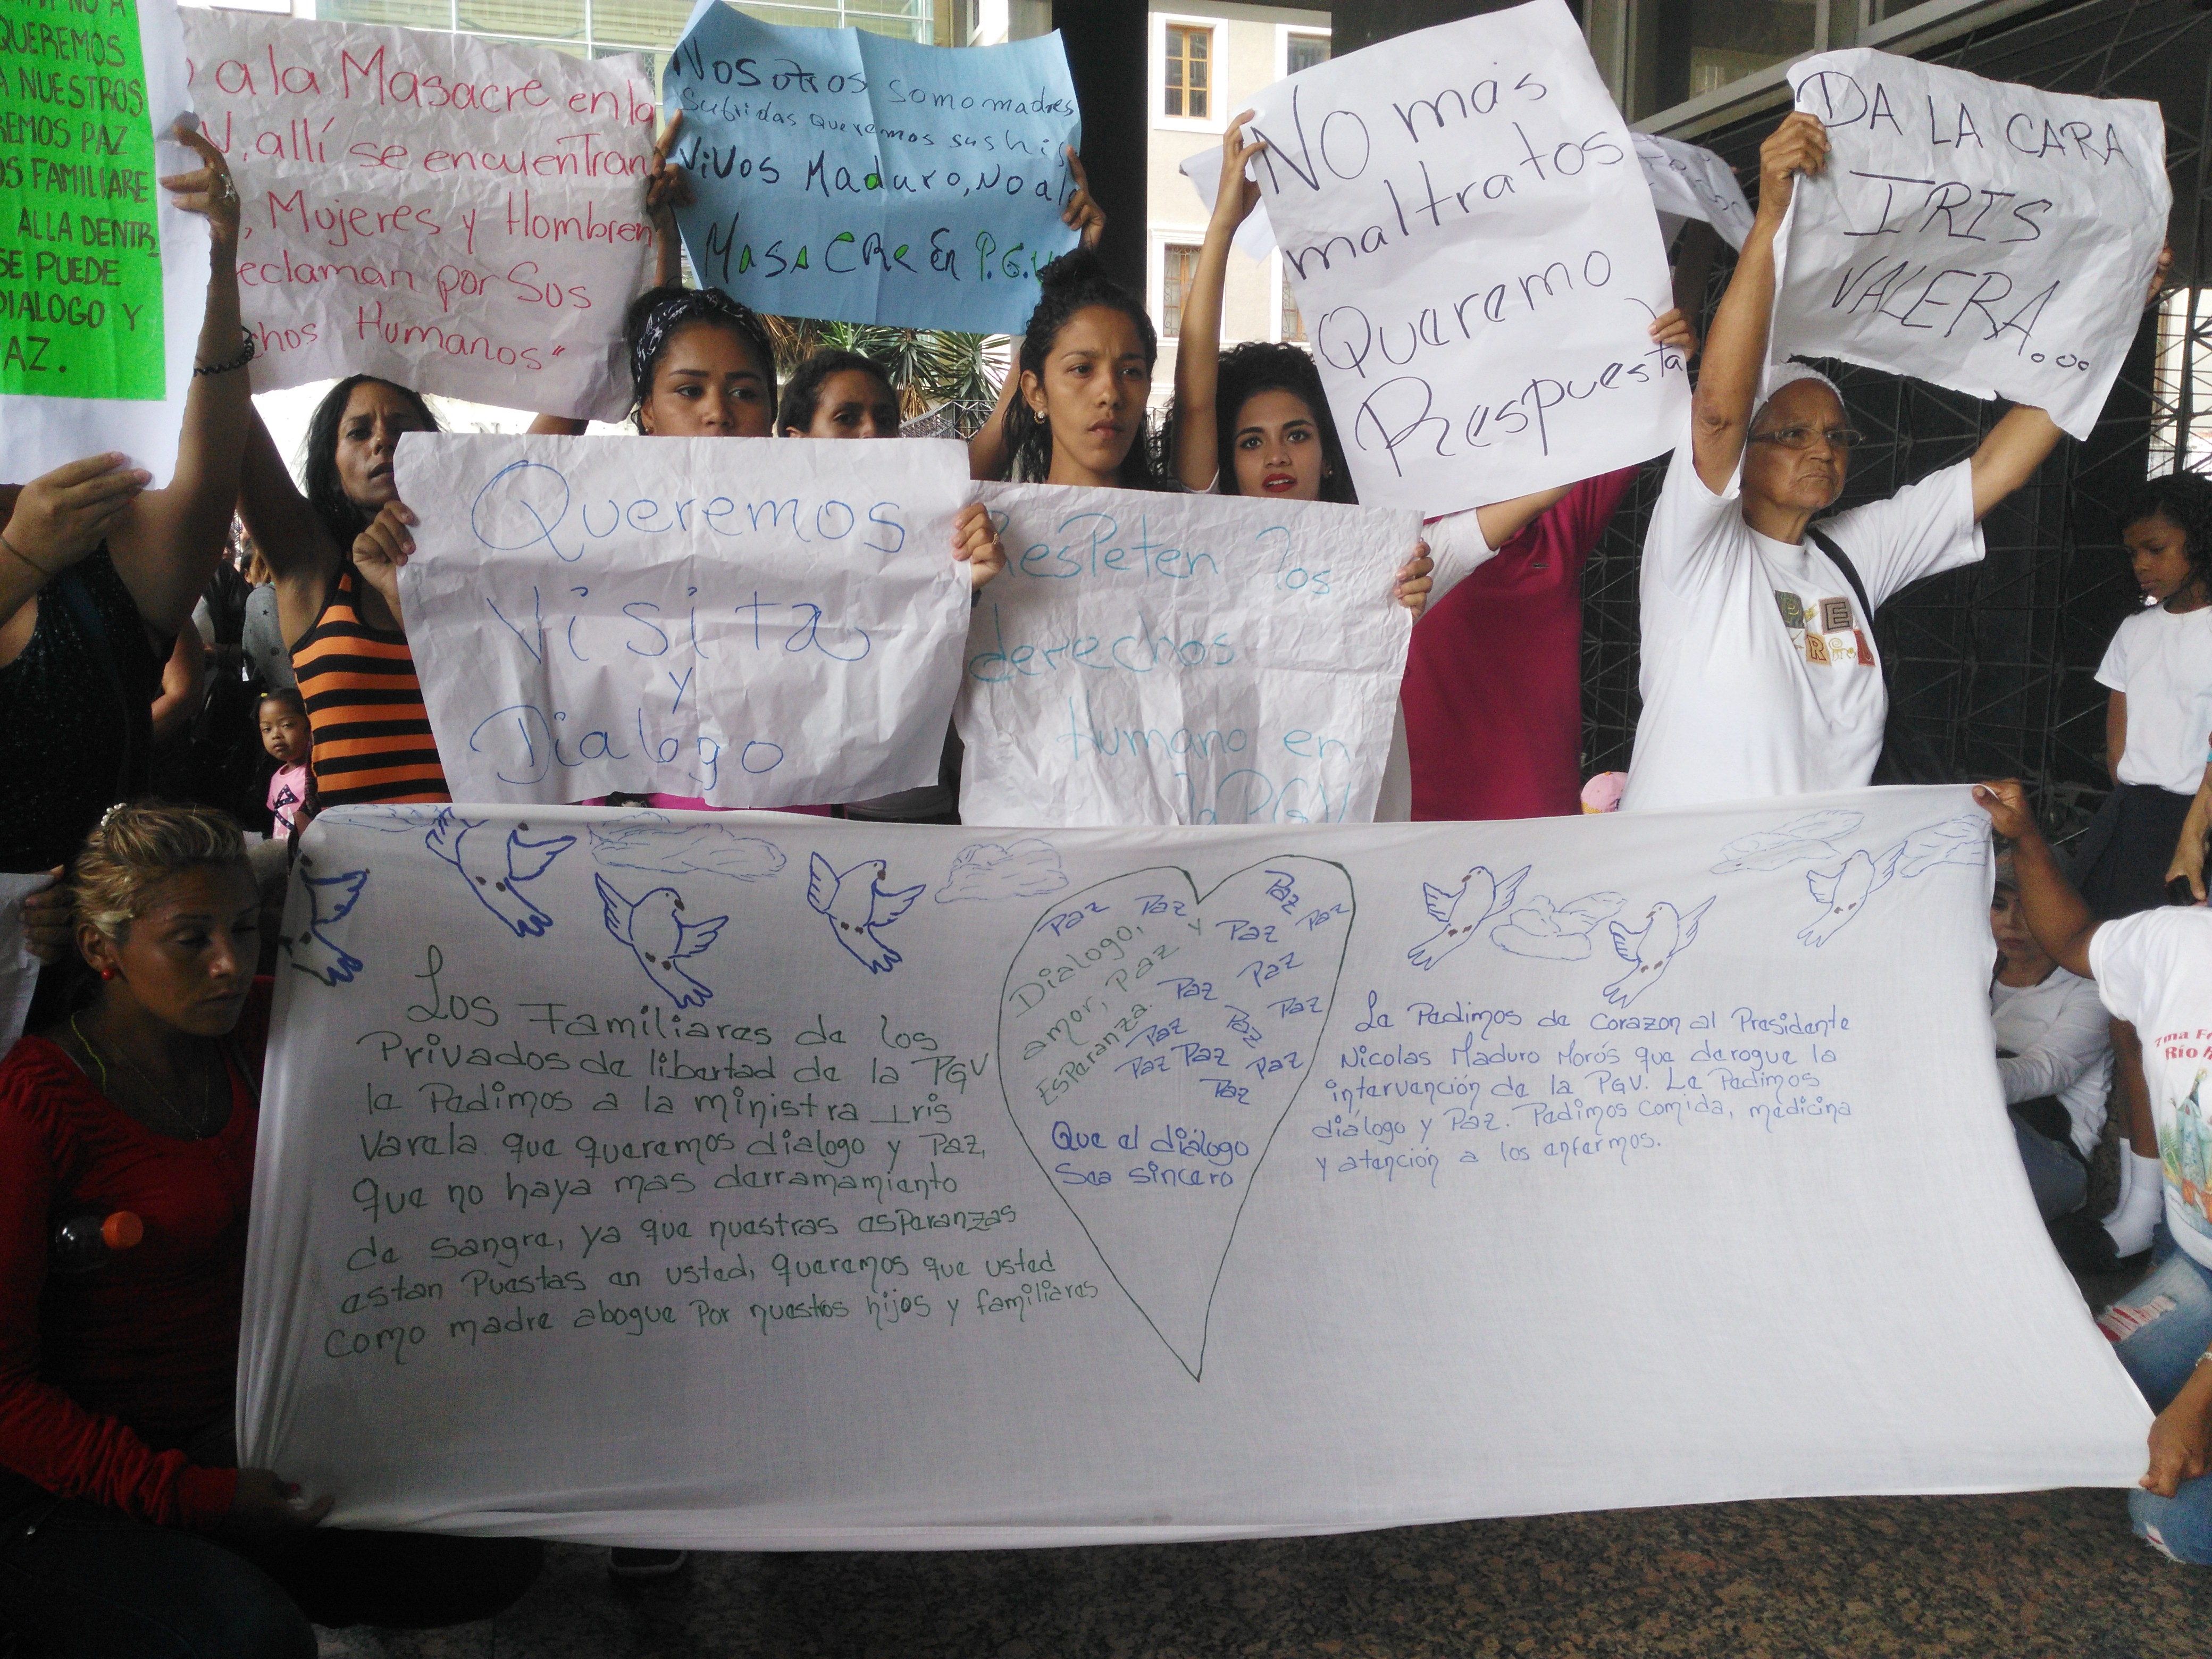 QUEREMOS
A NUESTROS
PAZ
FAMILIARE
ALLA DENTR
SE PUEDE
DIALOGO Y
AZ.
a la Masacre en la
V, allí se encuentran
, Mujeres y Hombren
eclaman por Sus
chos Humanos"
Nosotros somo madres
Sufridas queremos sus hi
Vivos Maduro, No a la
MasaCRe En P.G.V
NO más
maltratos
Queremo
Respuesta
DA LA CARA
IRIS
VALERA...
Queremos
Visita
y
Dialogo
ResPeten los
derechos
Humano en
la PGV
Los Familiares de los
Privados de libertad de la PGV
le Pedimos a la ministra Iris
Varela que queremos dialogo y Paz,
que no haya mas derramamiento
de sangre, ya que nuestras esperanzas
estan Puestas en usted, queremos que usted
como madre abogue Por nuestros hijos y familiares
Paz Paz Paz Paz
Paz
Paz Paz
Paz Paz Paz
Paz Paz Paz
Paz
Dialogo,
amor, Paz y
Esperanza.
Que el diálogo
Sea sincero
Le Pedimos de corazon al Presidente
Nicolas Maduro Morós que derogue la
intervención de la PGV. Le Pedimos
diálogo y Paz. Pedimos comida, medicina
y atención a los enfermos.